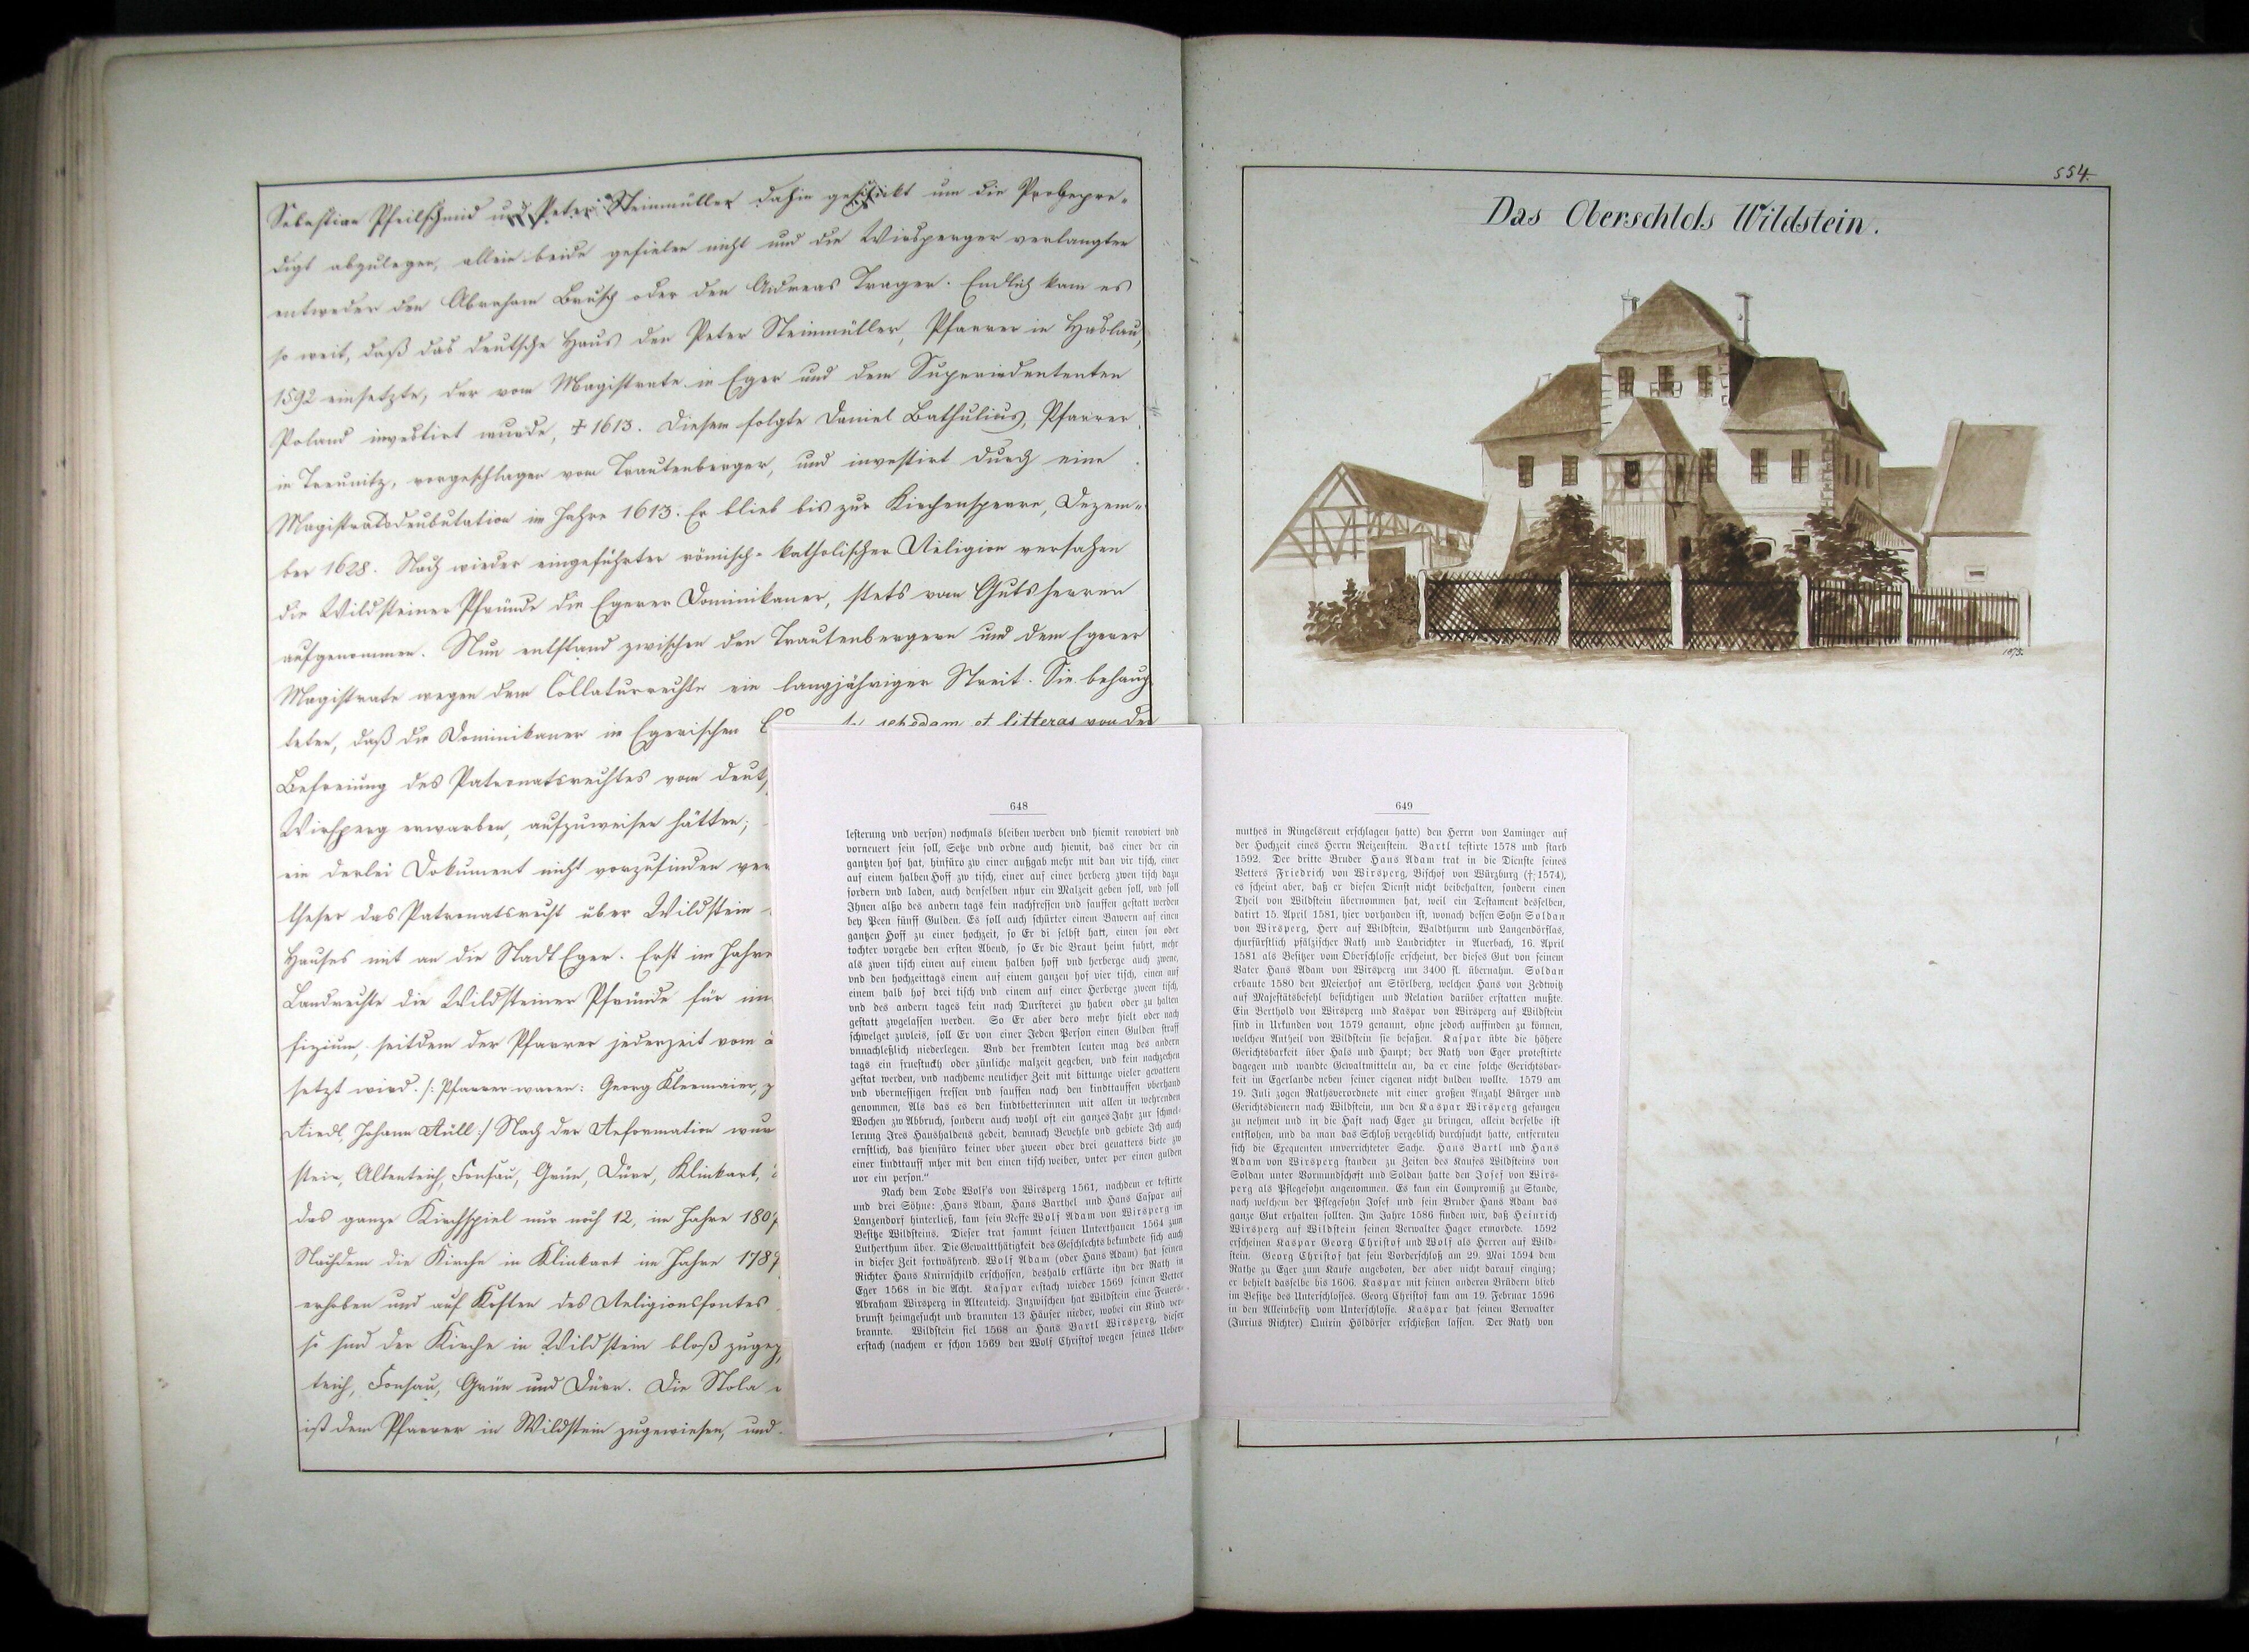 Sebastian Pfeilschmid und Peter Steinmüller dahin geschickt um die Probepre-
digt abzulegen, allein beide gefielen nicht und die Wirsperger verlangten
entweder den Abraham Brusch oder den Andreas Trager. Endlich kam es
so weit, daß das deutsche Haus den Peter Steinmüller, Pfarrer in Haslau,
1592 einsetzte, der vom Magistrate in Eger und dem Superindententen
Poland investirt wurde, ‡ 1613. Diesem folgte Daniel Bathulius, Pfarrer
in Treunitz, vorgeschlagen vom Trautenberger, und investirt durch eine
Magistratsdeubutation im Jahre 1613. Er blieb bis zur Kirchensperre, Dezem-
ber 1628. Nach wieder eingeführter römisch-katholischer Religion versahen
die Wildsteiner Pfründe die Egerer Dominikaner, stets vom Gutsherren
aufgenommen. Nun entstand zwischen den Trautenbergern und dem Egerer
Magistrate wegen dem Collaturrechte ein langjähriger Streit. Sie behaup
teten, daß die Dominikaner im Egerischen schedam et litteras von der
Befreiung des Patronatsrechtes vom deuts
Wirsperg erwarben, aufzuweisen hätten;
ein derlei Dokument nicht vorzufinden ver
theser das Patronatsrecht über Wildstein
Hauses mit an die Stadt Eger. Erst im Jahre
Landrechte die Wildsteiner Pfründe für
fizium, seitdem der Pfarrer jederzeit vom
setzt wird. /: Pfarrer waren: Georg Kleemaier,
Riedl, Johann Rüll :/ Nach der Reformation wur
stein, Altenteich, Fonsau, Grün, Dürr, Klinkart,
das ganze Kirchspiel nur noch 12, im Jahre 1807
Nachdem die Kirche in Klinkart im Jahre 1787
erhoben und auf Kosten des Religionsfontes
so sind der Kirche in Wildstein bloß zugep
teich, Fonsau, Grün und Dürr. Die Stola
ist dem Pfarrer in Wildstein zugewiesen, und
648
lesterung vnd verson) nochmals bleiben werden vnd hiemit renoviert vnd
vorneuert sein soll, Setze vnd ordne auch hiemit, das einer der ein
gantzten hof hat, hinfüro zw einer außgab mehr mit dan vir tisch, einer
auf einem halben Hoff zw tisch, einer auf einer herberg zwen tisch dazu
fordern vnd laden, auch denselben nhur ein Malzeit geben soll, vnd soll
Ihnen alßo des andern tags kein nachfressen vnd sauffen gestatt werden
bey Peen fünff Gulden. Es soll auch schürter einem Bawern auf einen
gantzen Hoff zu einer hochzeit, so Er di selbst hatt, einen son oder
tochter vorgebe den ersten Abend, so Er die Braut heim fuhrt, mehr
als zwen tisch einen auf einem halben hoff vnd herberge auch zwene,
vnd den hochzeittags einem auf einem ganzen hof vier tisch, einen auf
einem halb hof drei tisch vnd einem auf einer Herberge zween tisch,
vnd des andern tages kein nach Dursterei zw haben oder zu halten
gestatt zwgelassen werden. So Er aber dero mehr hielt oder nach
schwelget zuvleis, soll Er von einer Jeden Person einen Gulden straff
vnnachleßlich niederlegen. Vnd der fremdten leuten mag des andern
tags ein fruestuckh oder zünliche malzeit gegeben, vnd kein nachzechen
gestat werden, vnd nachdeme neulicher Zeit mit bittunge vieler gevattern
vnd vbermessigen fressen vnd sauffen nach den kindttauffen vberhand
genommen, Als das es den kindtbetterinnen mit allen in wehrenden
Wochen zu Abbruch, sondern auch wohl oft ein ganzes Jahr zur schmel-
lerung Ires Haushaldens gedeit, demnach Bevehle vnd gebiete Ich auch
ernstlich, das hienfüro keiner vber zween oder drei geuatters biete zw
einer kindttauff mher mit den einen tisch weiber, vnter per einen gulden
vor ein person.“
Nach dem Tode Wolf's von Wirsperg 1561, nachdem er testirte
und drei Söhne: Hans Adam, Hans Barthel und Hans Caspar auf
Lanzendorf hinterließ, kam sein Neffe Wolf Adam von Wirsperg im
Besitze Wildsteins. Dieser trat sammt seinen Unterthanen 1564 zum
Lutherthum über. Die Gewaltthätigkeit des Geschlechts bekundete sich auch
in dieser Zeit fortwährend. Wolf Adam (oder Hans Adam) hat seinen
Richter Hans Knirnschild erschossen, deshalb erklärte ihn der Rath in
Eger 1568 in die Acht. Kaspar erstach wieder 1569 seinen Vetter
Abraham Wirsperg in Altenteich. Inzwischen hat Wildstein eine Feuers-
brunst heimgesucht und brannten 13 Häuser nieder, wobei ein Kind ver-
brannte. Wildstein fiel 1568 an Hans Bartl Wirsperg, dieser
erstach (nachem er schon 1569 den Wolf Christof wegen seines Ueber-
554.
Das Oberschloß Wildstein.
1873.
649
muthes in Ringelsreut erschlagen hatte) den Herrn von Laminger auf
der Hochzeit eines Herrn Reizenstein. Bartl testirte 1578 und starb
1592. Der dritte Bruder Hans Adam trat in die Dienste seines
Vetters Friedrich von Wirsperg, Bischof von Würzburg (†; 1574),
es scheint aber, daß er diesen Dienst nicht beibehalten, sondern einen
Theil von Wildstein übernommen hat, weil ein Testament desselben,
datirt 15. April 1581, hier vorhanden ist, wonach dessen Sohn Soldan
von Wirsperg, Herr auf Wildstein, Waldthurm und Langendörflas,
churfürstlich pfälzischer Rath und Landrichter in Auerbach, 16. April
1581 als Besitzer vom Oberschlosse erscheint, der dieses Gut von seinem
Vater Hans Adam von Wirsperg um 3400 fl. übernahm. Soldan
erbaute 1580 den Meierhof am Störlberg, welchen Hans von Zedtwitz
auf Majestätsbefehl besichtigen und Relation darüber erstatten mußte.
Ein Berthold von Wirsperg und Kaspar von Wirsperg auf Wildstein
sind in Urkunden von 1579 genannt, ohne jedoch auffinden zu können,
welchen Antheil von Wildstein sie besaßen. Kaspar übte die höhere
Gerichtsbarkeit über Hals und Haupt; der Rath von Eger protestirte
dagegen und wandte Gewaltmitteln an, da er eine solche Gerichtsbar-
keit im Egerlande neben seiner eigenen nicht dulden wollte. 1579 am
19. Juli zogen Rathsverordnete mit einer großen Anzahl Bürger und
Gerichtsdienern nach Wildstein, um den Kaspar Wirsperg gefangen
zu nehmen und in die Haft nach Eger zu bringen, allein derselbe ist
entflohen, und da man das Schloß vergeblich durchsucht hatte, entfernten
sich die Exequenten unverrichteter Sache. Hans Bartl und Hans
Adam von Wirsperg standen zu Zeiten des Kaufes Wildsteins von
Soldan unter Vormundschaft und Soldan hatte den Josef von Wirs-
perg als Pflegesohn angenommen. Es kam ein Compromiß zu Stande,
nach welchem der Pflegesohn Josef und sein Bruder Hans Adam das
ganze Gut erhalten sollten. Im Jahre 1586 finden wir, daß Heinrich
Wirsperg auf Wildstein seinen Verwalter Hager ermordete. 1592
erscheinen Kaspar Georg Christof und Wolf als Herren auf Wild-
stein. Georg Christof hat sein Vorderschloß am 29. Mai 1594 dem
Rathe zu Eger zum Kaufe angeboten, der aber nicht darauf einging;
er behielt dasselbe bis 1606. Kaspar mit seinen anderen Brüdern blieb
im Besitze des Unterschlosses. Georg Christof kam am 19. Februar 1596
in den Alleinbesitz vom Unterschlosse. Kaspar hat seinen Verwalter
(Jurius Richter) Quirin Höldörfer erschießen lassen. Der Rath von